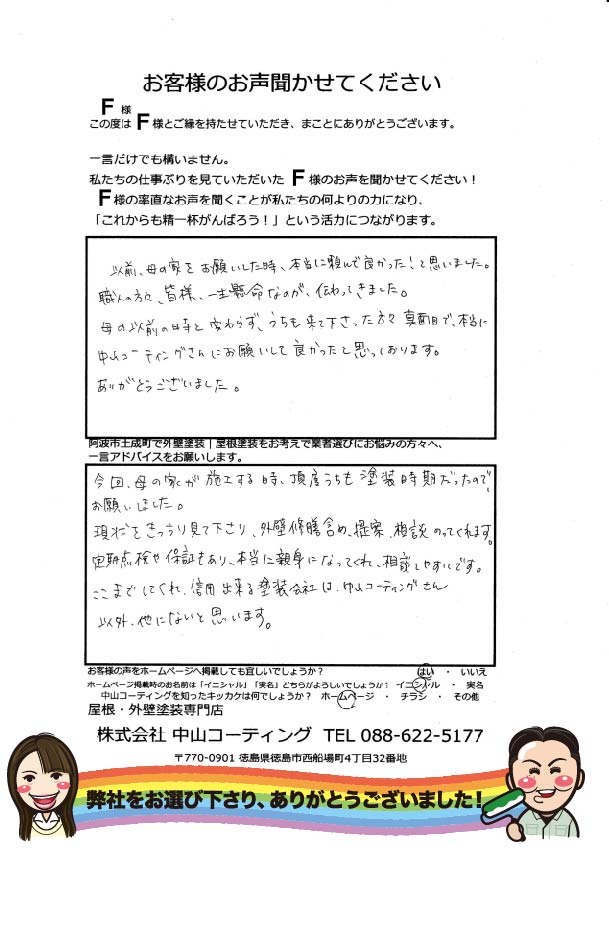 お客様のお声聞かせてください
F 様
この度は F 様とご縁を持たせていただき、まことにありがとうございます。
一言だけでも構いません。
私たちの仕事ぶりを見ていただいた F 様のお声を聞かせてください！
F 様の率直なお声を聞くことが私たちの何よりの力になり、
「これからも精一杯がんばろう！」という活力につながります。
以前、母の家をお願いした時、本当に頼んで良かった！と思いました。
職人の方々、皆様、一生懸命なのが、伝わってきました。
母の以前の時と変わらず、うちも来て下さった方々真面目で、本当に
中山コーティングさんにお願いして良かったと思っております。
ありがとうございました。
阿波市土成町で外壁塗装｜屋根塗装をお考えで業者選びにお悩みの方々へ、
一言アドバイスをお願いします。
今回、母の家が施工する時、頂度うちも塗装時期だったので
お願いしました。
現状をきっちり見て下さり、外壁修膳含め、提案、相談のってくれます。
定期点検や保証もあり、本当に親身になってくれ、相談しやすいです。
ここまでしてくれ、信用出来る塗装会社は、中山コーティングさん
以外、他にないと思います。
お客様の声をホームページへ掲載しても宜しいでしょうか？ はい ・ いいえ
ホームページ掲載時のお名前は「イニシャル」「実名」どちらがよろしいでしょうか？ イニシャル ・ 実名
中山コーティングを知ったキッカケは何でしょうか？ ホームページ ・ チラシ ・ その他
屋根・外壁塗装専門店
株式会社 中山コーティング TEL 088-622-5177
〒770-0901 徳島県徳島市西船場町4丁目32番地
弊社をお選び下さり、ありがとうございました！